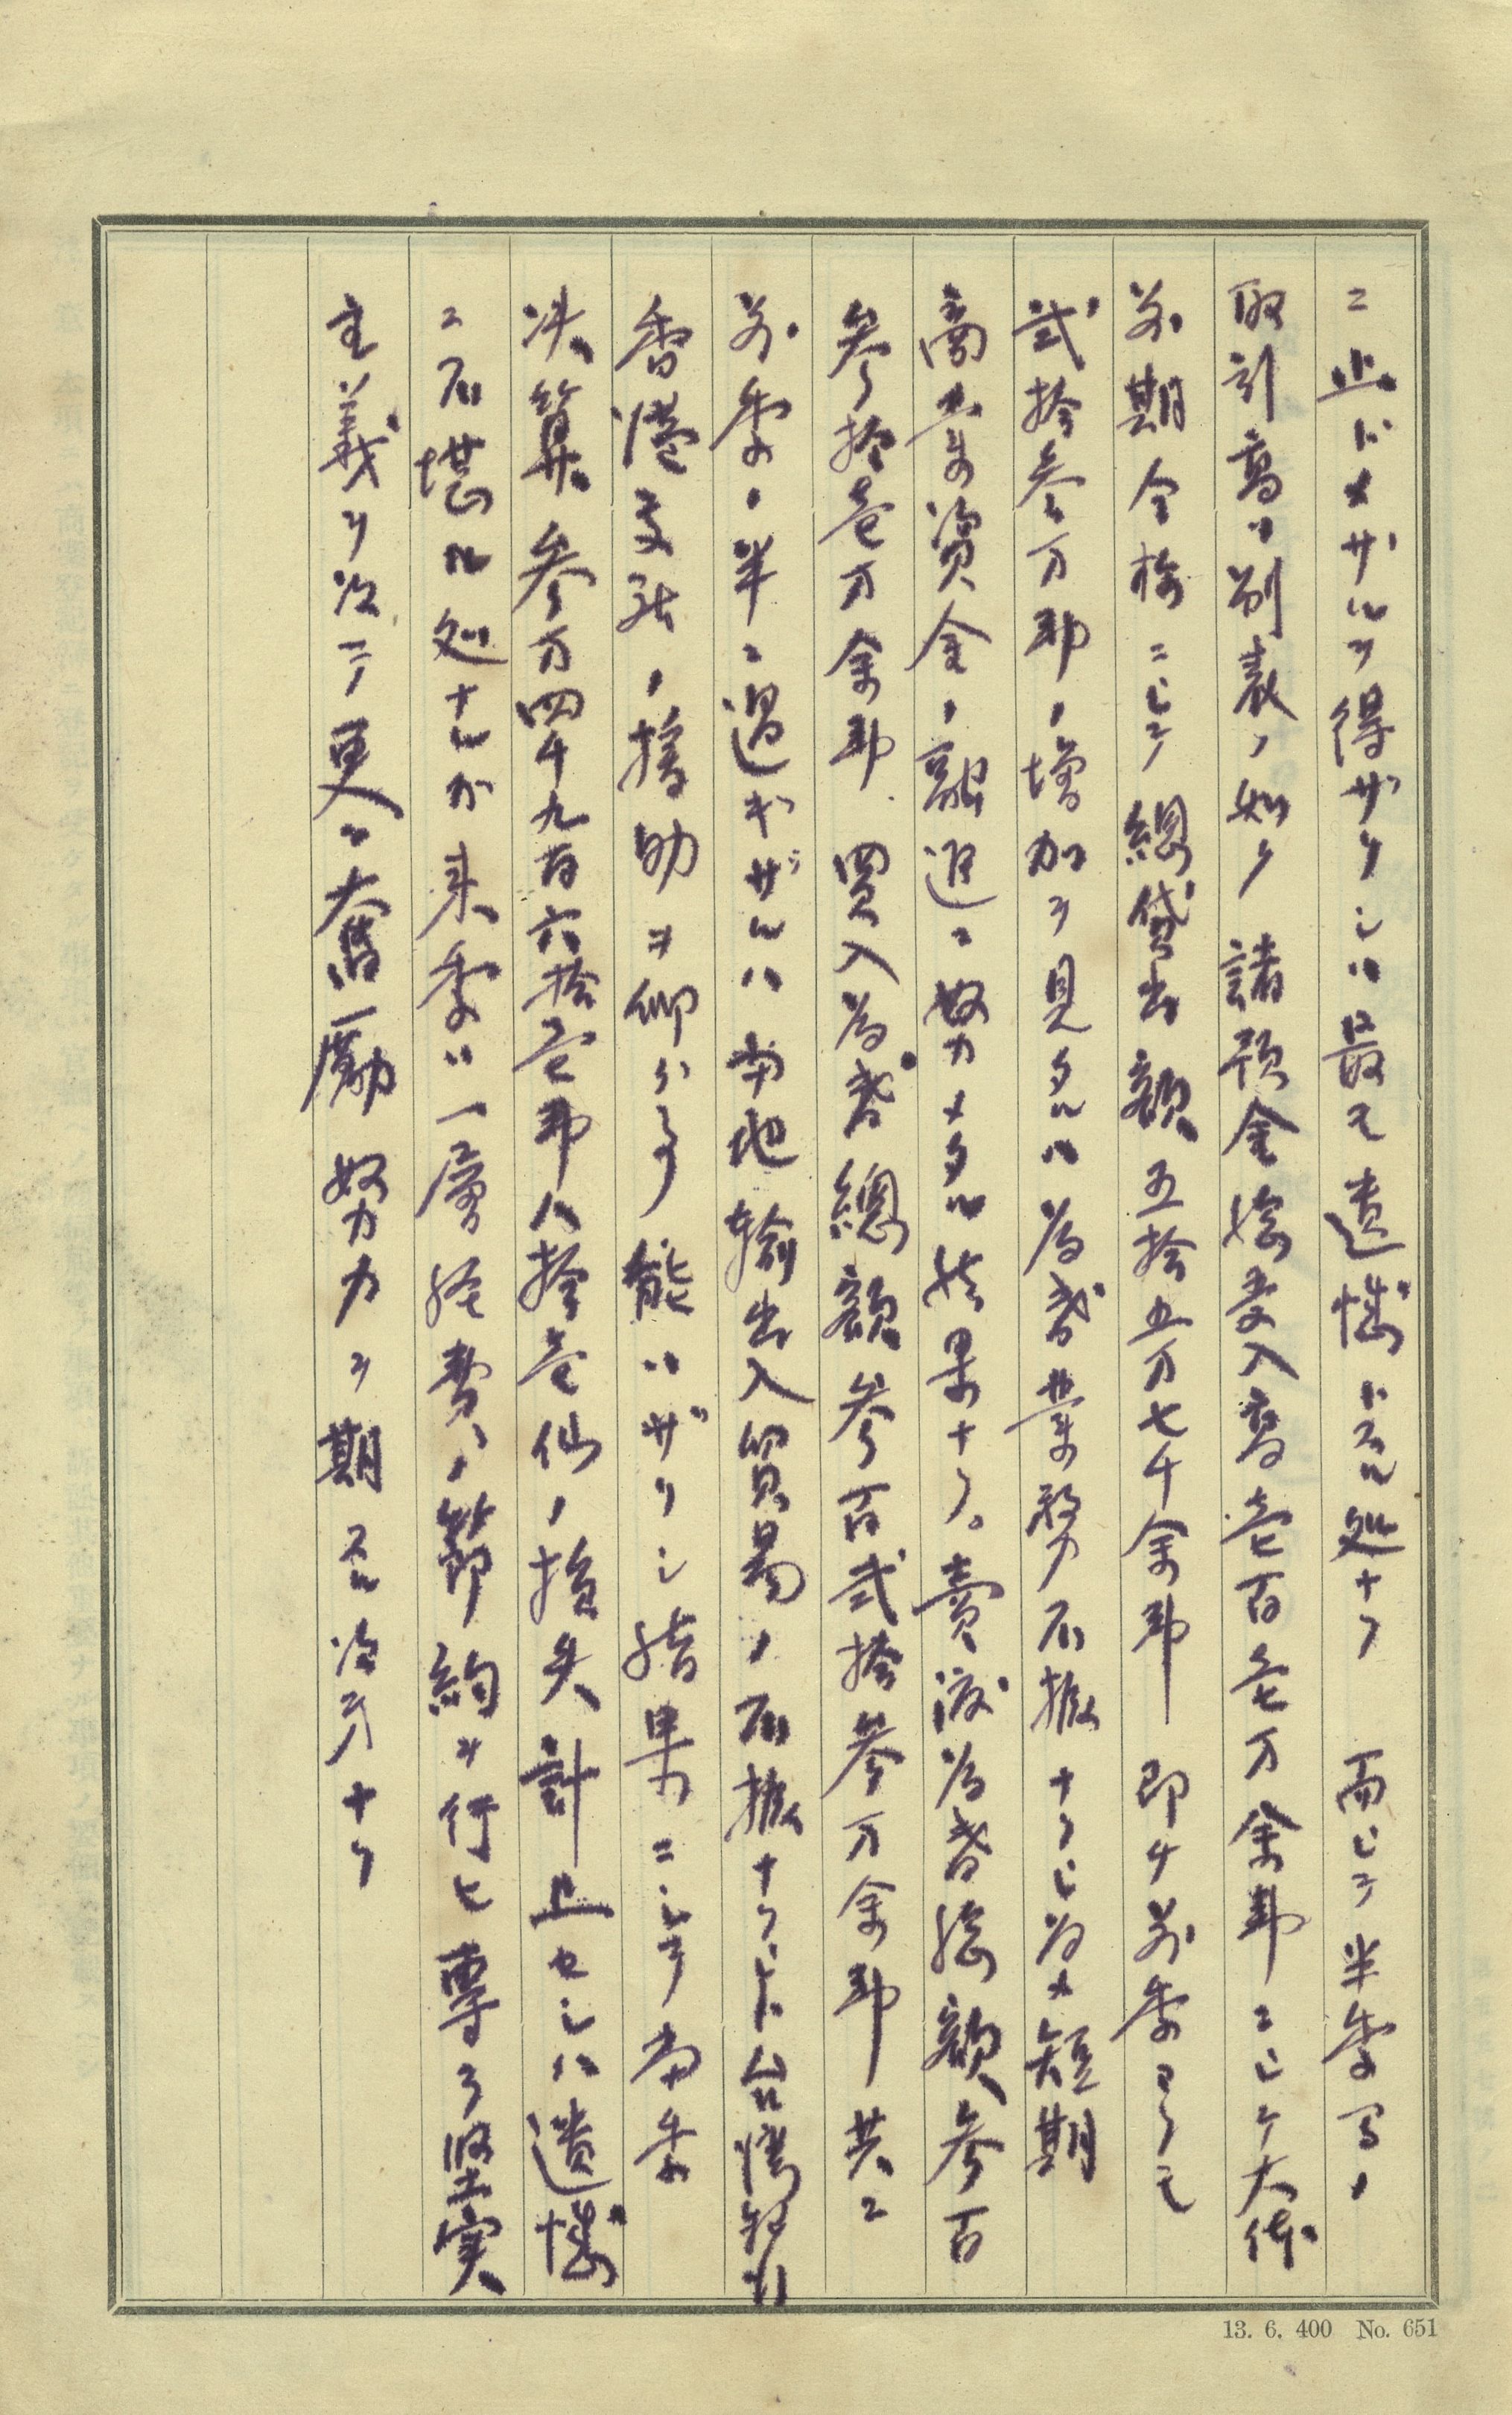 ニ止ドメザルヲ得ザリシハ最モ遺憾トスル処ナリ 而シテ半季間ノ
取引高ハ別表ノ如ク 諸預金総受入高壱百壱万余弗ニシテ大体
前期仝様ニシテ 総貸出額五拾五万七千余弗 即チ前季ヨリモ
弐拾参万弗ノ増加ヲ見タルハ為替業務不振ナリシ為メ短期
商業資金ノ融通ニ努メタル結果ナリ。 売渡為替総額参百
参拾壱万余弗 買入為替總額参百弐拾参万余弗 共ニ
前季ノ半ニ過ギザルハ当地輸出入貿易ノ不振ナリト台湾銀行
香港支店ノ援助ヲ仰ガヽル能ハザリシ結果ニシテ当季
决算参万四千九百六拾壱弗八拾壱仙ノ損失計上セシハ遺憾
ニ不堪ル処ナルガ来季ハ一層経費ノ節約ヲ行ヒ専ラ堅実
主義ヲ以テ更ニ奮励努力ヲ期スル次第ナリ
13. 6. 400 No. 651